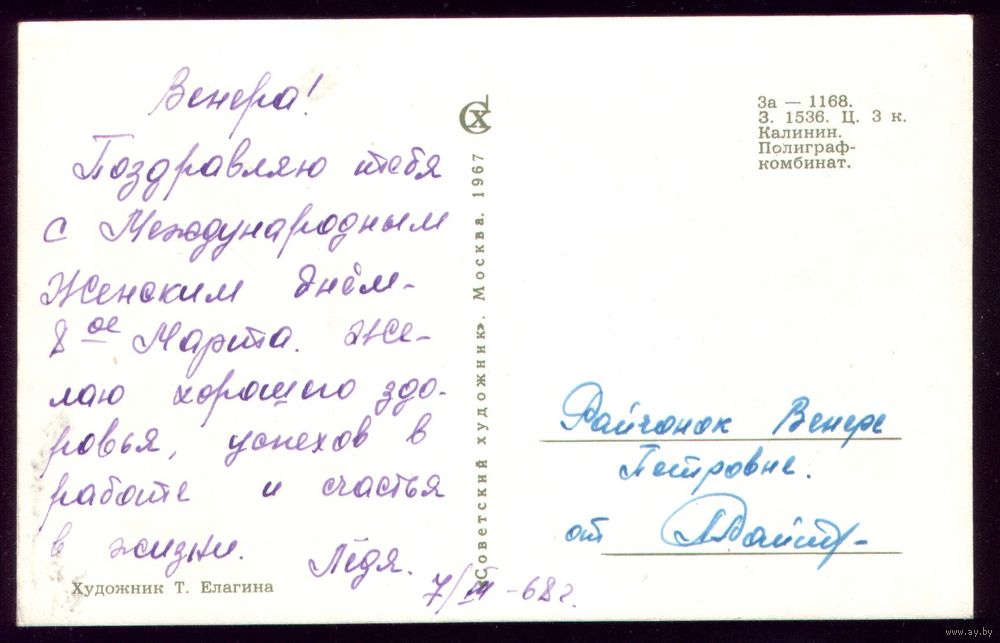 Венера!
Поздравляю тебя
с Международным
Женским днём-
8ое Марта. Же-
лаю хорошего здо-
ровья, успехов в
работе и счастья
в жизни.
Лёдя.
7/III-68г.
Художник Т. Елагина
«Советский художник». Москва. 1967
СХ
За — 1168.
З. 1536. Ц. 3 к.
Калинин.
Полиграф-
комбинат.
Райчонок Венере
Петровне.
от
www.ay.by